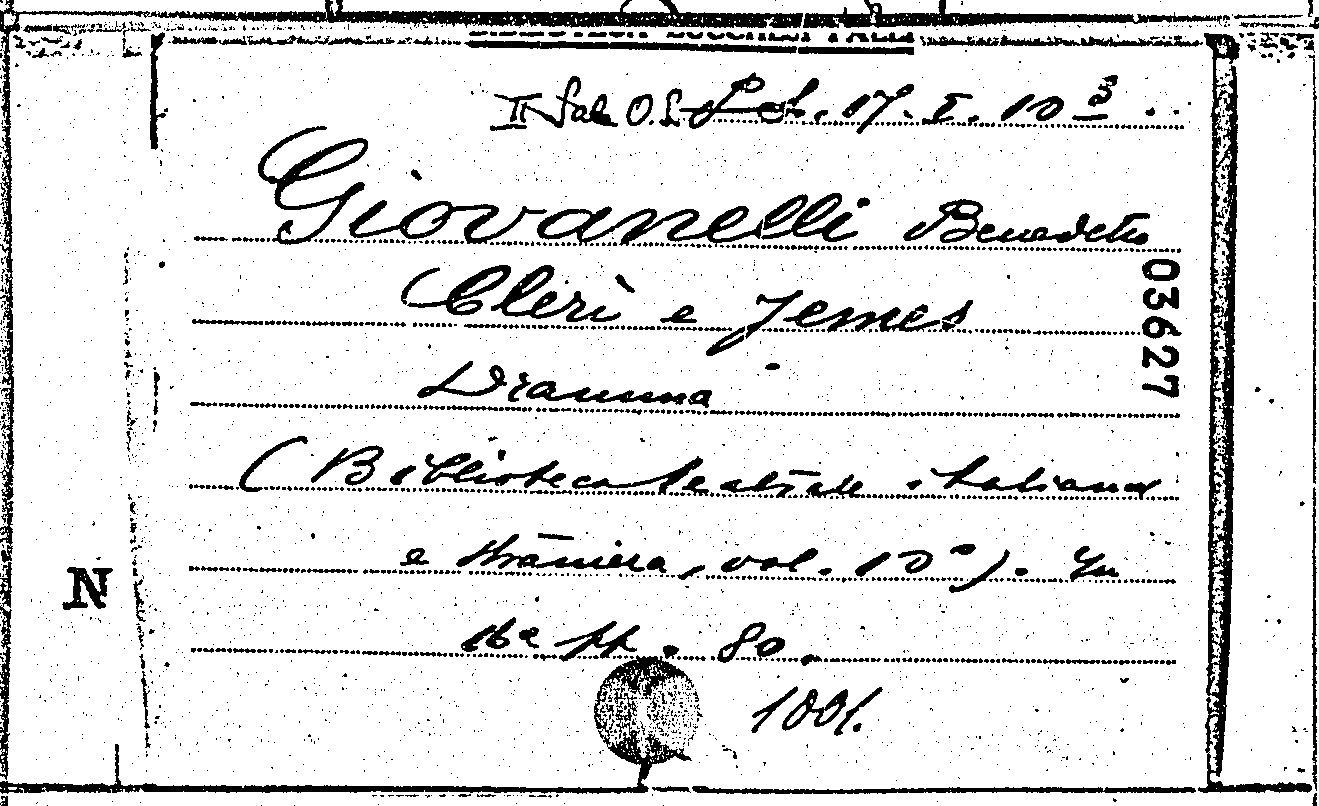 BIBLIOTECA LUCCHESI PALLI
II Sala O.S. Let. 17. I. 10 3
Giovanelli Benedetto
Clerì e Jemes
Dramma
(Biblioteca teatrale italiana
e straniera, vol. 10°). In
16° pp. 80.
1001.
03627
N